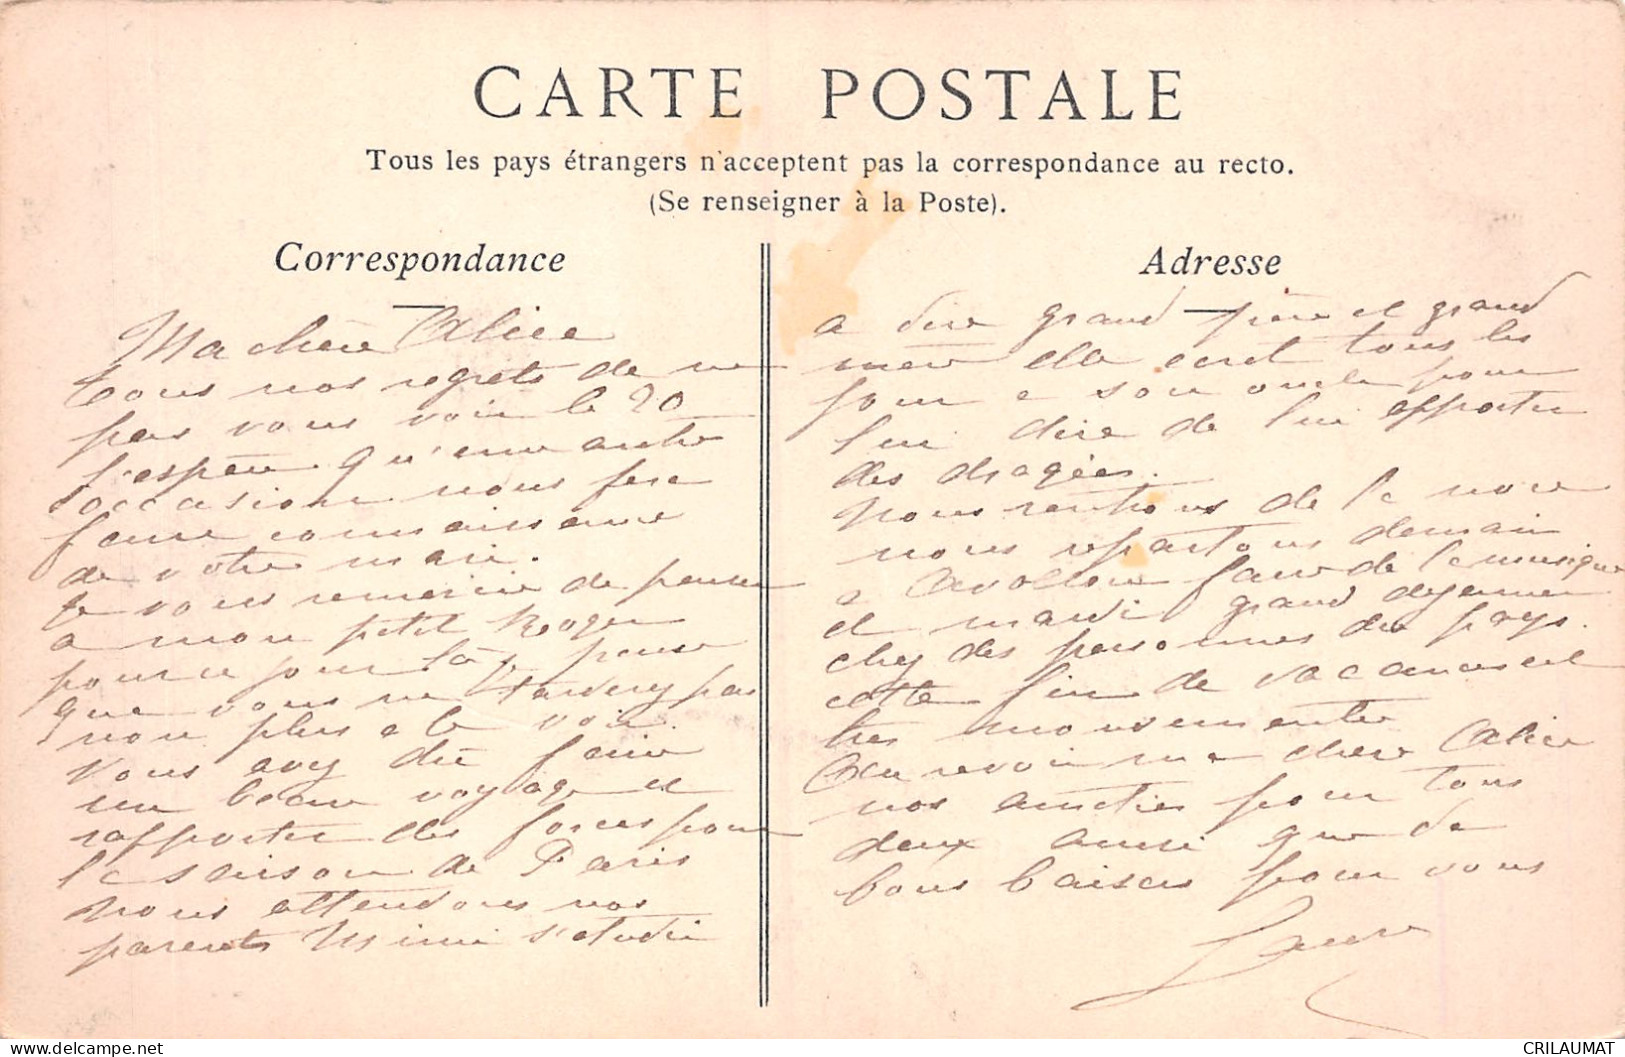 CARTE POSTALE
Tous les pays étrangers n'acceptent pas la correspondance au recto.
(Se renseigner à la Poste).
Correspondance
Ma chère Alice
tous nos regrets de ne
pas vous voir le 20
j'espère qu'une autre
occasion nous fera
faire connaissance
de votre mari.
Je vous remercie de penser
a mon petit Roger
pour ce jour là je pense
que vous ne pas
non plus a le voir.
Vous avez dû faire
un beau voyage et
rapporter des forces pour
la saison de Paris
Nous attendons nos
parents Mimi s'étudie
Adresse
a dire grand père et grand
mère elle ecrit tous les
jours a son oncle pour
lui dire de lui apporter
des dragées.
Nous rentrons de la noce
nous repartons demain
a Avallon faire de la musique
et mardi grand dejeuner
chez des personnes du pays.
cette fin de vacances est
tres mouvementée
Au revoir ma chère Alice
nos amitiés pour tous
deux ainsi que de
bons baisers pour vous
Laure
CRILAUMAT